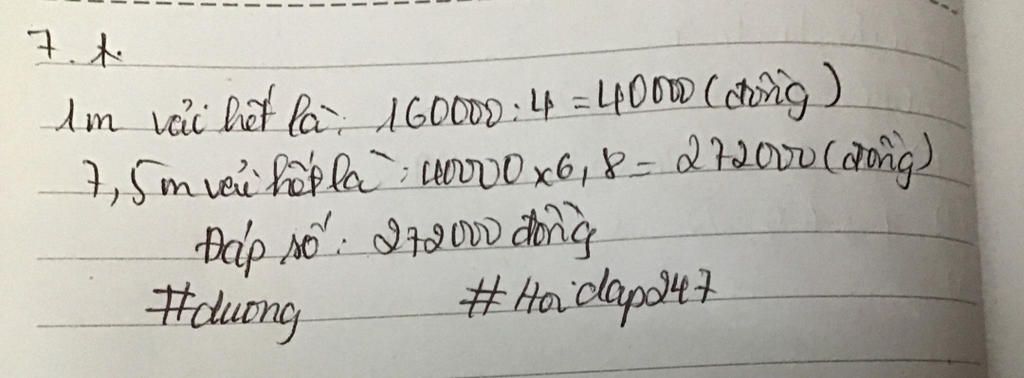 7.
1m vải hết là: 160000:4=40000(đồng)
7,5m vải hết là: 40000x6,8=272000(đồng)
Đáp số: 272000 đồng
#duong #Hoidap247